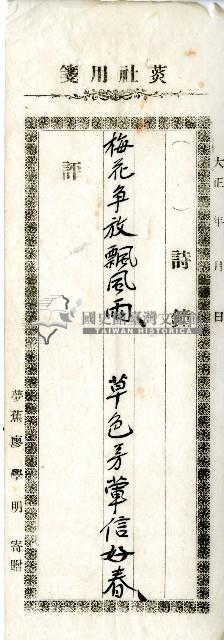 菼社用箋
大正 年 月 日
（ ）詩鐘
梅花争放飄風雨、 草色芳葷信好春、
評
夢蕉廖學明寄贈
國史館臺灣文獻館
TAIWAN HISTORICA